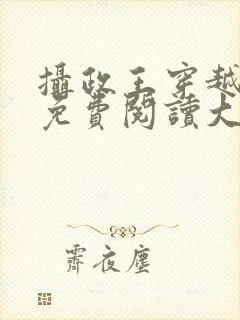 攝政王穿越
免費閱讀大
霽夜塵